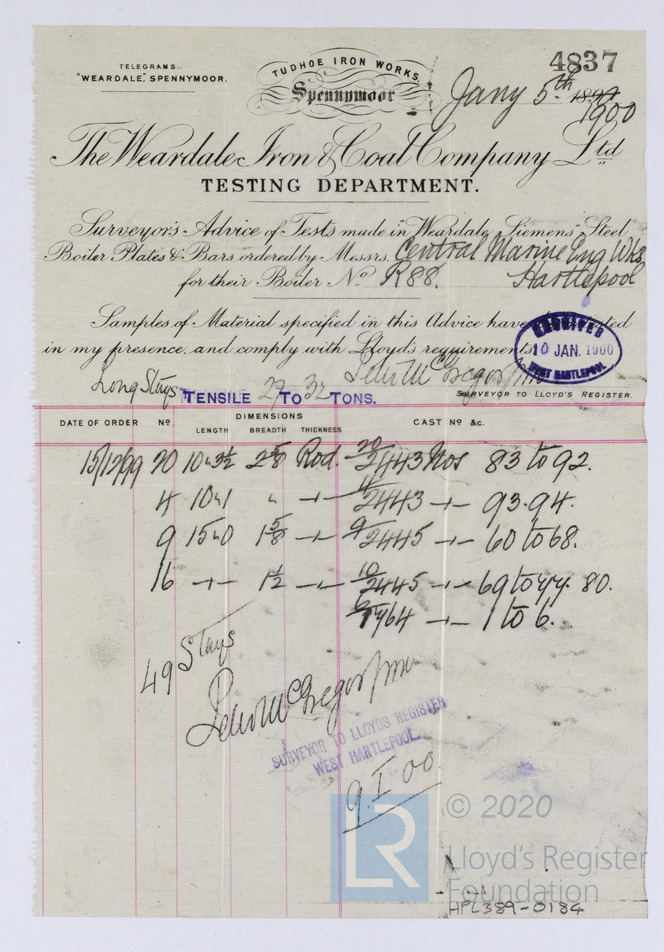 4837
TELEGRAMS.
"WEARDALE," SPENNYMOOR.
TUDHOE IRON WORKS
Spennymoor
Jany 5th 1900
The Weardale Iron & Coal Company Ltd
TESTING DEPARTMENT.
Surveyor's Advice of Tests made in Weardale Siemens' Steel
Boiler Plates & Bars ordered by Messrs. Central Marine Eng Wks
for their Boiler No. R88. Hartlepool
Samples of Material specified in this Advice have been tested
in my presence, and comply with Lloyd's requirements.
RECEIVED
10 JAN. 1900
WEST HARTLEPOOL
Long Stays TENSILE 27 TO 32 TONS.
SURVEYOR TO LLOYD'S REGISTER.
DATE OF ORDER No. DIMENSIONS CAST No. &c.
LENGTH BREADTH THICKNESS
15/12/99 20 10 3½ 2⅝ Rod. 20/2443 Nos 83 to 92.
4 10 1 " 4/2443 93.94.
9 15 0 1⅝ 9/2445 60 to 68.
16 1½ 10/2445 69 to 77. 80.
1764 1 to 6.
49 Stays
McGregor
SURVEYOR TO LLOYDS REGISTER
WEST HARTLEPOOL.
9.I.00
LR
© 2020
Lloyd's Register
Foundation
HPL389-0184